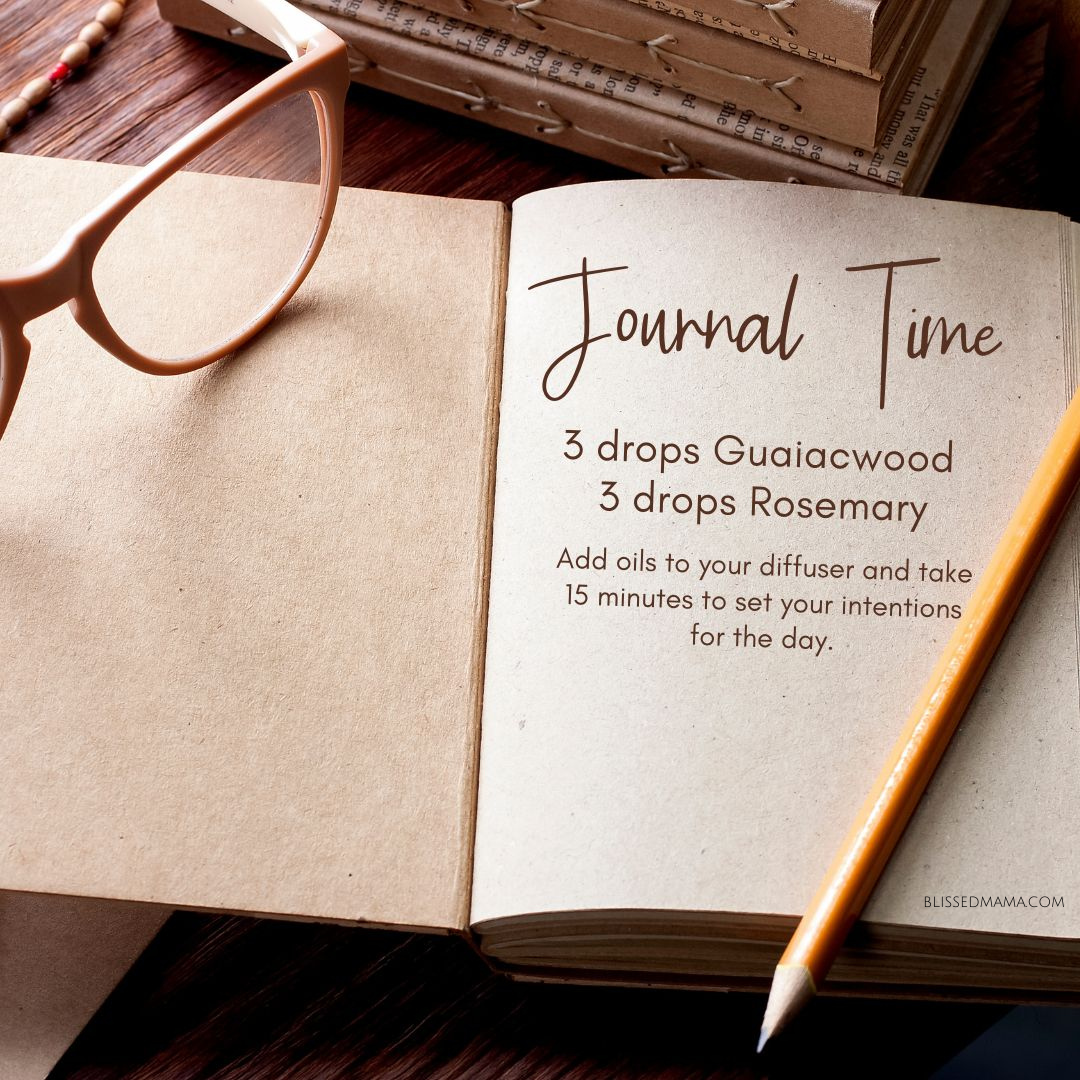 Journal Time
3 drops Guaiacwood
3 drops Rosemary
Add oils to your diffuser and take
15 minutes to set your intentions
for the day.
BLISSEDMAMA.COM
"That was all th